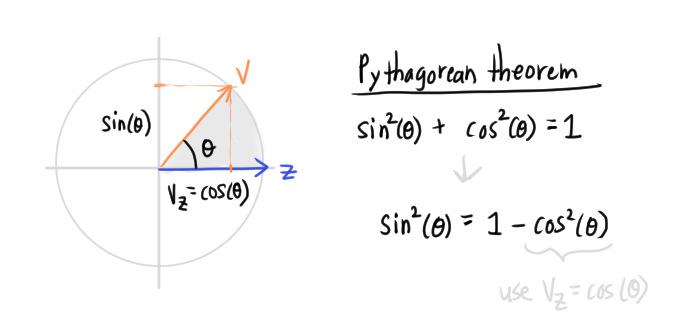 V
sin(θ)
θ
z
V_z = cos(θ)
Pythagorean theorem
sin²(θ) + cos²(θ) = 1
sin²(θ) = 1 - cos²(θ)
use V_z = cos(θ)